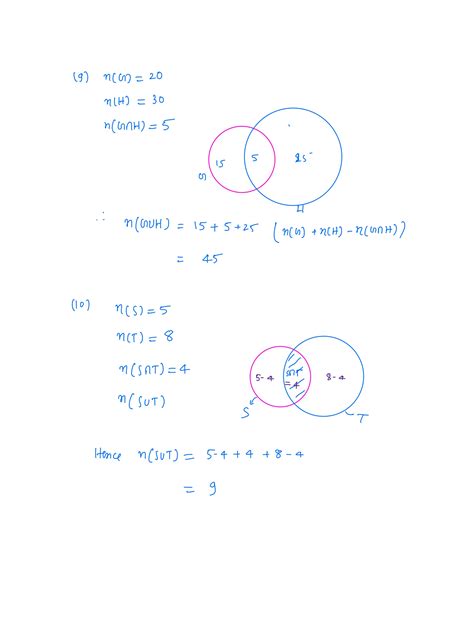 (9) n(G) = 20
n(H) = 30
n(G∩H) = 5
15 5 25
G
H
∴ n(G∪H) = 15 + 5 + 25 (n(G) + n(H) - n(G∩H))
= 45
(10) n(S) = 5
n(T) = 8
n(S∩T) = 4
n(S∪T)
5-4 S∩T = 4 8-4
S T
Hence n(S∪T) = 5-4 + 4 + 8-4
= 9